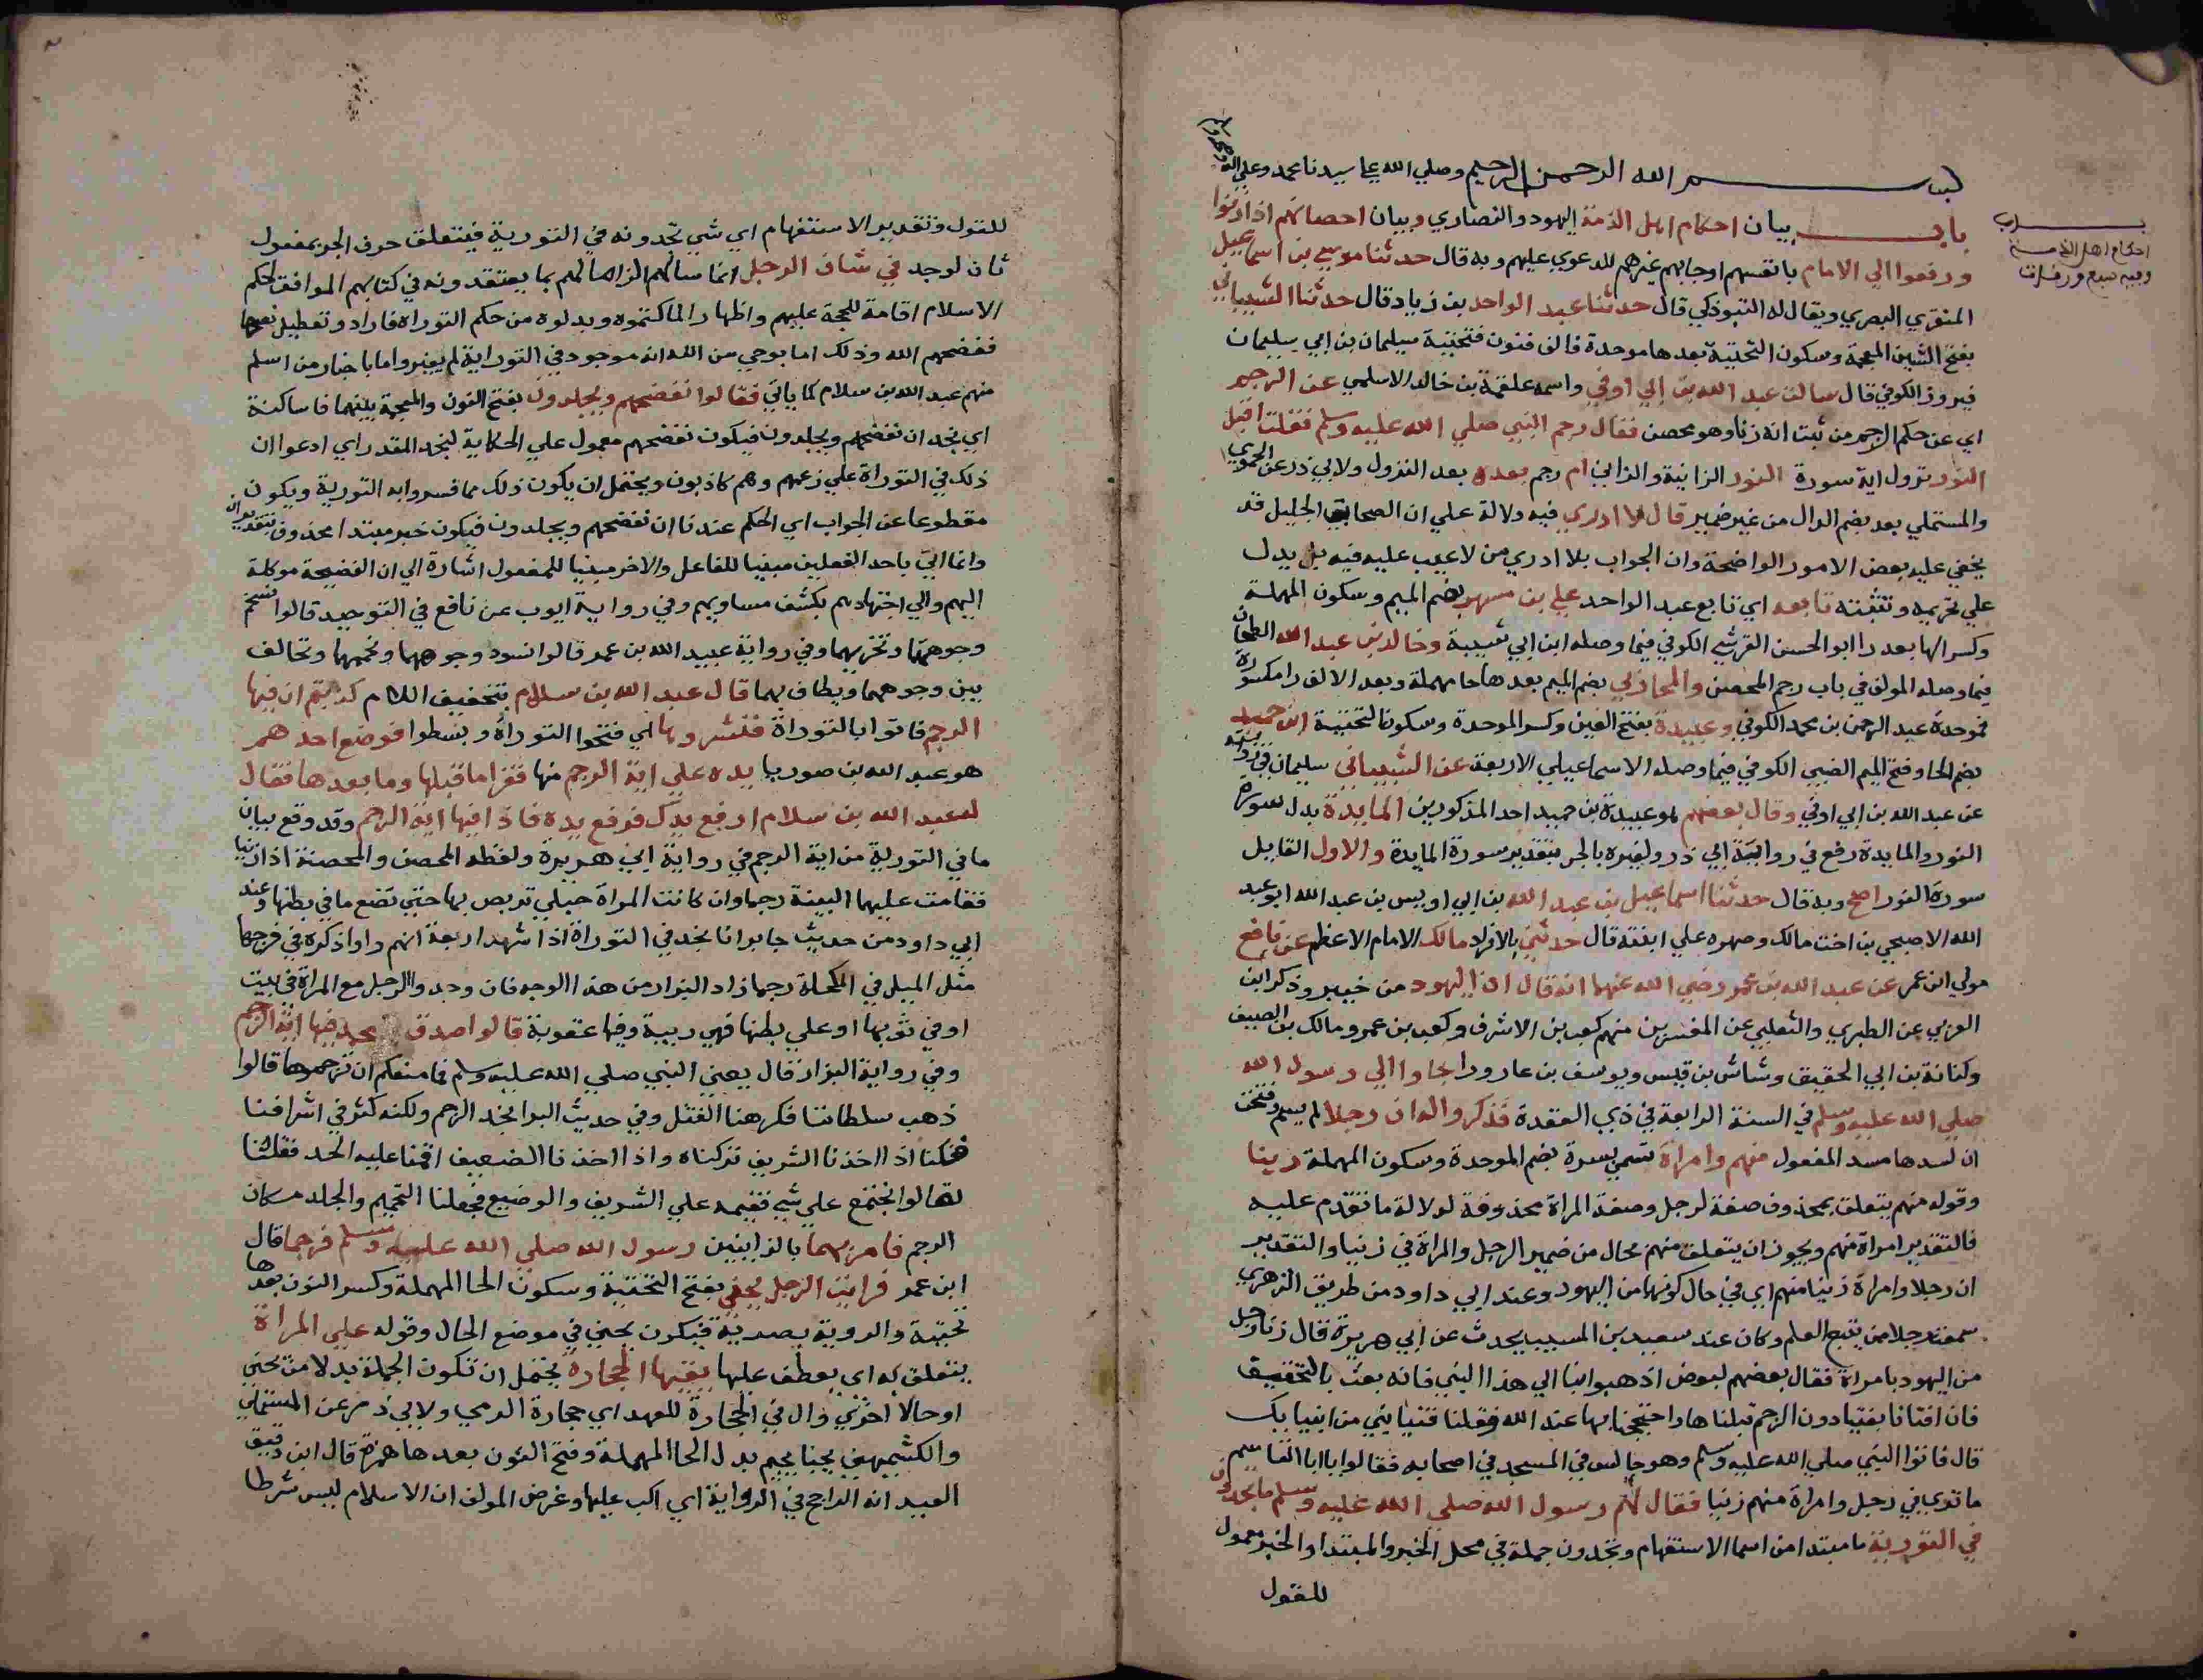 بسم الله الرحمن الرحيم وصلي الله علي سيدنا محمد وعلي اله وصحبه وسلم
باب
احكام اهل الذمة
وفيه سبع ورقات
باب بيان احكام اهل الذمة اليهود والنصاري وبيان احصانهم اذا زنوا
ورفعوا الي الامام بانفسهم او جابهم غيرهم للدعوي عليهم وبه قال حدثنا موسي بن اسماعيل
المنقري البصري ويقال له التبوذكي قال حدثنا عبد الواحد بن زياد قال حدثنا الشيباني
بفتح الشين المعجمة وسكون التحتية بعدها موحدة فالف فنون فتحتية سليمان بن ابي سليمان
فيروز الكوفي قال سالت عبد الله بن ابي اوفي واسمه علقمة بن خالد الاسلمي عن الرجم
اي عن حكم الرجم من ثبت انه زنا وهو محصن فقال رجم النبي صلي الله عليه وسلم فقلت اقبل
النور نزول اية سورة النور الزانية والزاني ام رجم بعده بعد النزول ولابي ذر عن الحموي
والمستملي بعد بضم الدال من غير ضمير قال لا ادري فيه دلالة علي ان الصحابي الجليل قد
يخفي عليه بعض الامور الواضحة وان الجواب بلا ادري من لا عيب عليه فيه بل يدل
علي تحريه وتثبته تابعه اي تابع عبد الواحد علي بن مسهر بضم الميم وسكون المهملة
وكسر الها بعد را ابو الحسن القرشي الكوفي فيما وصله ابن ابي شيبة وخالد بن عبد الله الطحان
فيما وصله المولف في باب رجم المحصن والمحاربي بضم الميم بعدها حا مهملة وبعد الالف را مكسورة
فموحدة عبد الرحمن بن محمد الكوفي وعبيدة بفتح العين وكسر الموحدة وسكون التحتية ابن حميد
بضم الحا وفتح الميم الضبي الكوفي فيما وصله الاسماعيلي الاربعة عن الشيباني سليمان بن فيروز بسنده
عن عبد الله بن ابي اوفي وقال بعضهم هو عبيدة بن حميد احد المذكورين المايدة بدل سورة
النور والمايدة رفع في رواية ابي ذر ولغيره بالجر بتقدير سورة المايدة والاول القايل
سورة النور اصح وبه قال حدثنا اسماعيل بن عبد الله بن ابي اويس بن عبد الله ابو عبد
الله الاصبحي بن اخت مالك وصهره علي ابنته قال حدثني بالافراد مالك الامام الاعظم عن نافع
مولي ابن عمر عن عبد الله بن عمر رضي الله عنهما انه قال ان اليهود من خيبر وذكر ابن
العربي عن الطبري والثعلبي عن المفسرين منهم كعب بن الاشرف وكعب بن عمرو ومالك بن الصيف
وكنانة بن ابي الحقيق وشاش بن قيس ويوسف بن عازورا جاوا الي رسول الله
صلي الله عليه وسلم في السنة الرابعة في ذي القعدة فذكروا له ان رجلا لم يسم وفتحت
ان لسدها مسد المفعول منهم وامراة تسمي بسرة بضم الموحدة وسكون المهملة زنيا
وقوله منهم يتعلق بمحذوف صفة لرجل وصفة المراة محذوفة لدلالة ما تقدم عليه
فالتقدير امراة منهم ويجوز ان يتعلق منهم بحال من ضمير الرجل والمراة في زنيا والتقدير
ان رجلا وامراة زنيا منهم اي في حال كونهما من اليهود وعند ابي داود من طريق الزهري
سمعت رجلا ممن يتبع العلم وكان عند سعيد بن المسيب يحدث عن ابي هريرة قال زنا رجل
من اليهود بامراة فقال بعضهم لبعض اذهبوا بنا الي هذا النبي فانه بعث بالتخفيف
فان افتانا بفتيا دون الرجم قبلناها واحتججنا بها عند الله وقلنا فتيا نبي من انبيايك
قال فاتوا النبي صلي الله عليه وسلم وهو جالس في المسجد في اصحابه فقالوا يا ابا القاسم
ما تري في رجل وامراة منهم زنيا فقال لهم رسول الله صلي الله عليه وسلم ما تجدون
في التورية ما مبتدا من اسما الاستفهام وتجدون جملة في محل الخبر والمبتدا والخبر معمول
للقول
للقول وتقدير الاستفهام اي شي تجدونه في التورية فيتعلق حرف الجر بمفعول
ثان لوجد في شان الرجل انما سالهم الزاما لهم بما يعتقدونه في كتابهم الموافق لحكم
الاسلام اقامة للحجة عليهم واظهارا لما كتموه وبدلوه من حكم التوراة فارادوا تعطيل نصها
ففضحهم الله وذلك اما بوحي من الله انه موجود في التوراية لم يغير واما باخبار من اسلم
منهم عبد الله بن سلام كما ياتي فقالوا نفضحهم ويجلدون بفتح النون والمعجمة بينهما فا ساكنة
اي نجد ان نفضحهم ويجلدون فيكون نفضحهم معمول علي الحكاية لنجد المقدر اي ادعوا ان
ذلك في التوراة علي زعمهم وهم كاذبون ويحتمل ان يكون ذلك مما فسروا به التورية ويكون
مقطوعا عن الجواب اي الحكم عندنا ان نفضحهم ويجلدون فيكون خبر مبتدا محذوف بتقدير ان
وانما اتي باحد الفعلين مبنيا للفاعل والاخر مبنيا للمفعول اشارة الي ان الفضيحة موكلة
اليهم والي اجتهادهم بكشف مساويهم وفي رواية ايوب عن نافع في التوحيد قالوا نسخم
وجوههما ونخزيهما وفي رواية عبيد الله بن عمر قالوا نسود وجوههما ونحممهما ونخالف
بين وجوههما ويطاف بهما قال عبد الله بن سلام بتخفيف اللام كذبتم ان فيها
الرجم فاتوا بالتوراة فنشروها اي فتحوا التوراة وبسطوا فوضع احدهم
هو عبد الله بن صوريا يده علي اية الرجم منها فقرا ما قبلها وما بعدها فقال
له عبد الله بن سلام ارفع يدك فرفع يده فاذا فيها اية الرجم وقد وقع بيان
ما في التورية من اية الرجم في رواية ابي هريرة ولفظه المحصن والمحصنة اذا زنيا
فقامت عليهما البينة رجما وان كانت المراة حبلي تربص بها حتي تضع ما في بطنها وعند
ابي داود من حديث جابر انا نجد في التوراة اذا شهد اربعة انهم راوا ذكره في فرجها
مثل الميل في المكحلة رجما زاد البزار من هذا الوجه فان وجدوا الرجل مع المراة في بيت
او في ثوبها او علي بطنها فهي ريبة وفيها عقوبة قالوا صدق يا محمد فيها اية الرجم
وفي رواية البزار قال يعني النبي صلي الله عليه وسلم فما منعكم ان ترجموهما قالوا
ذهب سلطاننا فكرهنا القتل وفي حديث البرا نجد الرجم ولكنه كثر في اشرافنا
فكنا اذا اخذنا الشريف تركناه واذا اخذنا الضعيف اقمنا عليه الحد فقلنا
تعالوا نجتمع علي شي نقيمه علي الشريف والوضيع فجعلنا التحميم والجلد مكان
الرجم فامر بهما بالزانيين رسول الله صلي الله عليه وسلم فرجما قال
ابن عمر فرايت الرجل يحني بفتح التحتية وسكون الحا المهملة وكسر النون بعدها
تحتية والروية بصرية فيكون يحني في موضع الحال وقوله علي المراة
يتعلق به اي يعطف عليها يقيها الحجارة يحتمل ان تكون الجملة بدلا من يحني
او حالا اخري وال في الحجارة للعهد اي حجارة الرمي ولابي ذر عن المستملي
والكشميهني يجنا بجيم بدل الحا المهملة وفتح النون بعدها همزة قال ابن دقيق
العيد انه الراجح في الرواية اي اكب عليها وغرض المولف ان الاسلام ليس شرطا